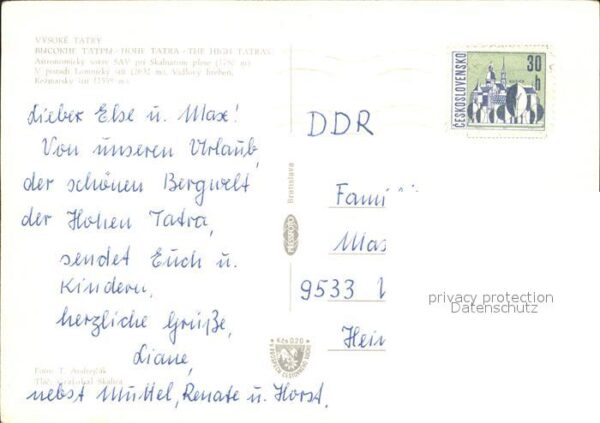 VYSOKÉ TATRY
ВЫСОКИЕ ТАТРЫ - HOHE TATRA - THE HIGH TATRAS
Astronomický ústav SAV pri Skalnatom plese (1751 m)
V pozadí Lomnický štít (2632 m), Vidlový hrebeň,
Kežmarský štít (2559 m)
Lieber Else u. Max!
Von unseren Urlaub,
der schönen Bergwelt
der Hohen Tatra,
sendet Euch u.
Kindern,
herzliche Grüße,
Liane,
nebst Muttel, Renate u. Horst.
Foto: T. Andrejčák
Tlač: Skalica
Bratislava
PRESSFOTO
Kčs 0,20
ČESKOSLOVENSKO
30
h
DDR
Fami
Max
9533
Hein
privacy protection
Datenschutz